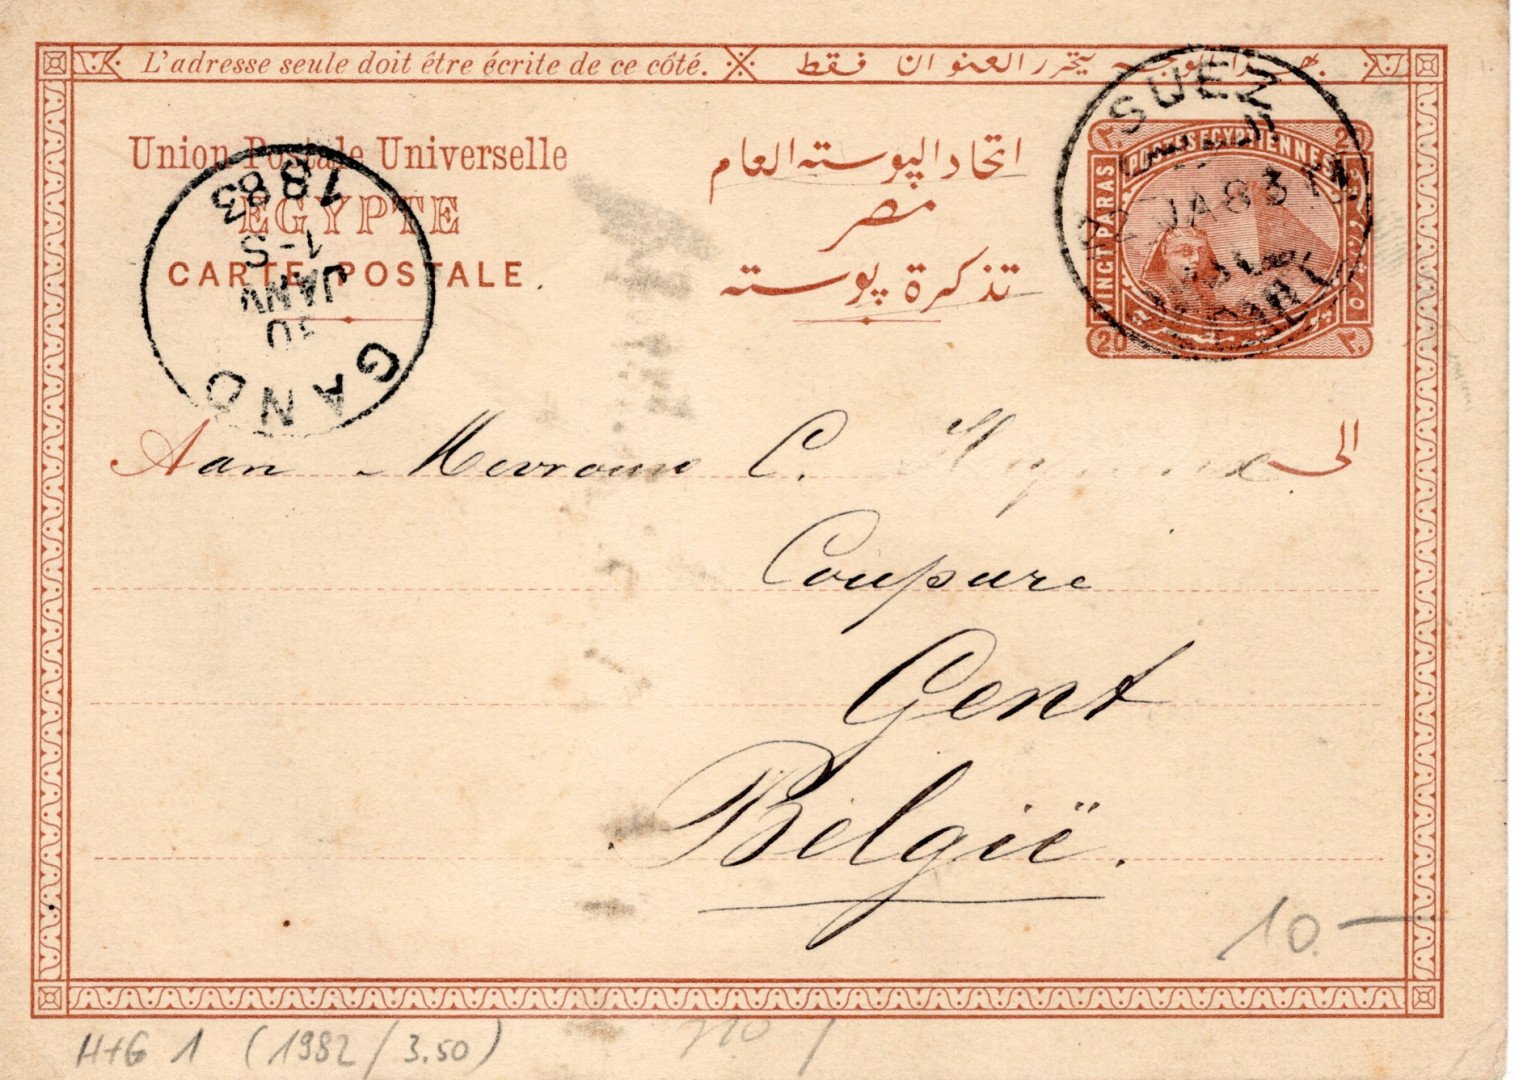 L'adresse seule doit être écrite de ce côté. يتحرر العنوان فقط
Union Postale Universelle
EGYPTE
CARTE POSTALE.
اتحاد البوسته العام
مصر
تذكرة بوسته
SUEZ
JA 83
POSTES EGYPTIENNES
VINGT PARAS
20
20
٢٠
GAND
10
JANV
1-S
1883
Aan Mevrouw C. الى
Coupure
Gent
België.
10.—
H+G 1 (1982/3.50)